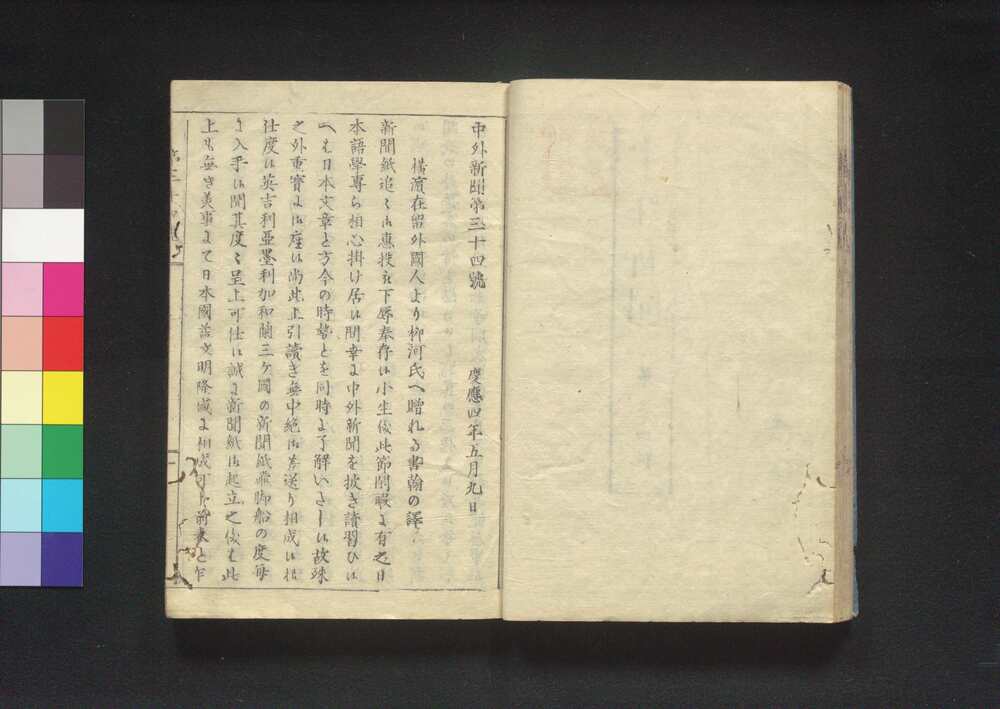 中外新聞第三十四號
慶應四年五月九日
橫濱在留外國人より柳河氏へ贈れる書翰の譯
新聞紙追々御惠投被下辱奉存候小生儀此節閑暇に有之日
本語學專ら相心掛け居候間幸に中外新聞を披き讀習ひ候
へば日本文章と方今の時勢とを同時に了解いたし候故殊
之外重寶に御座候尚此上引續き無中絶御差送り相成候樣
仕度候英吉利亞墨利加和蘭三ヶ國の新聞紙飛脚船の度每
に入手候間其度々呈上可仕候誠に新聞紙御起立之儀は此
上も無き美事にて日本國益文明隆盛に相成可申前表と乍